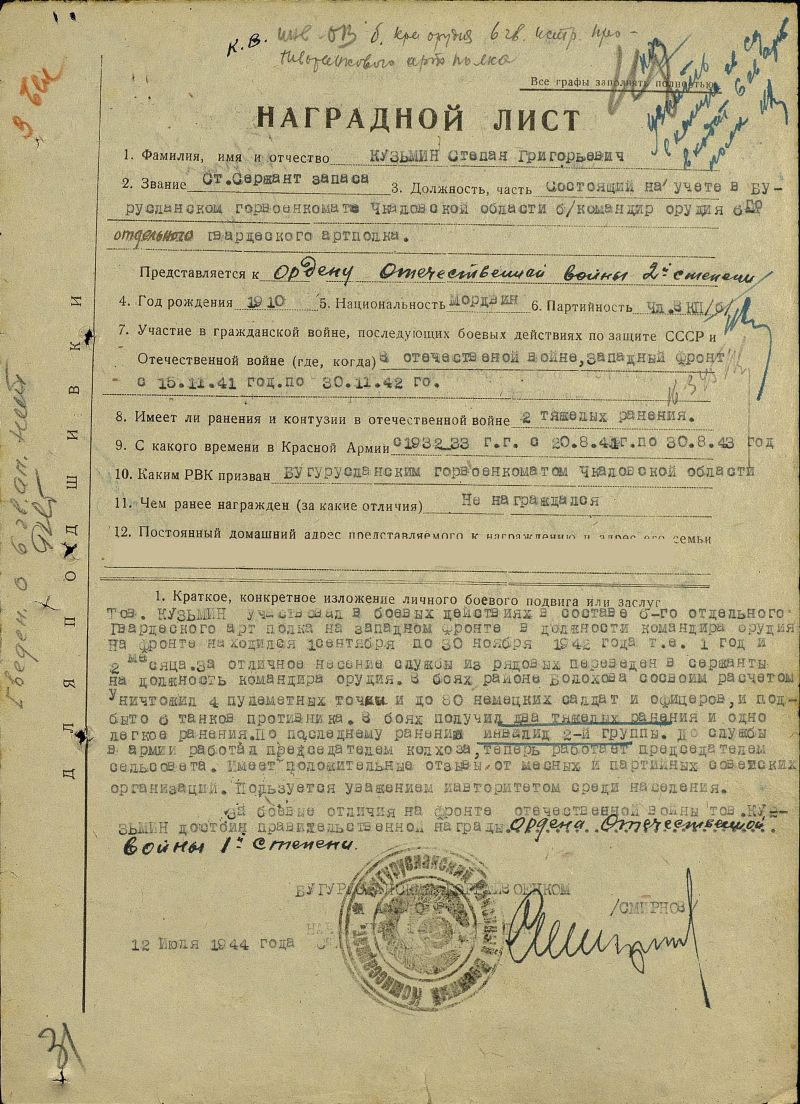 К.В. б. ком орудия 6 гв. истр. про-
тивотанкового арт полка
Все графы заполнять полностью
узнать
в каком
входит 6 гв арт
полк
НАГРАДНОЙ ЛИСТ
1. Фамилия, имя и отчество КУЗЬМИН Степан Григорьевич
2. Звание Ст.Сержант запаса 3. Должность, часть Состоящий на учете в Бу-
русланском горвоенкомате Чкаловской области б/командир орудия 6
отдельного гвардеского артполка.
Представляется к Ордену Отечественной войны 2й степени
4. Год рождения 1910 5. Национальность Мордвин 6. Партийность чл.ВКП/б/
7. Участие в гражданской войне, последующих боевых действиях по защите СССР и
Отечественной войне (где, когда) В отечественой войне, западный фронт
с 15.11.41 год.по 30.11.42 го.
8. Имеет ли ранения и контузии в отечественной войне 2 тяжелых ранения.
9. С какого времени в Красной Армии с1932_33 г.г. с 20.8.41г.по 30.8.43 год
10. Каким РВК призван БУГУРУСЛАНСКИМ горвоенкоматом Чкаловской области
11. Чем ранее награжден (за какие отличия) Не награждался
12. Постоянный домашний адрес представляемого к награждению и адрес его семьи
1. Краткое, конкретное изложение личного боевого подвига или заслуг
Тов. КУЗЬМИН участвовал в боевых действиях в составе 6-го отдельного
Гвардеского арт полка на западном фронте в должности командира орудия
На фронте находился 1сентября по 30 ноября 1942 года т.е. 1 год и
2 месяца.за отличное несение службы из рядовых переведен в сержанты
на должность командира орудия. В боях районе Волохова сосвоим расчетом
Уничтожил 4 пулеметных точки и до 80 немецких салдат и офицеров, и под-
быто 6 танков противника. В боях получил два тяжелых ранения и одно
легкое ранения.По последнему ранению инвалид 2-й группы. До службы
в армии работал председателем колхоза, теперь работает председателем
сельсовета. Имеет положительные отзывы от месных и партийных советских
организаций. Пользуется уважением иавторитетом среди населения.
За боевые отличия на фронте отечественной войны тов.КУЗ-
ЬМИН достоин правительственной награды Ордена Отечественной
войны 1й степени.
БУГУРУСЛАНСКИЙ ГОРРАЙВОЕНКОМ
МАЙОР
/СМИРНОВ
12 Июля 1944 года
Бугурусланский Районный Военный Комиссариат
ДЛЯ ПОДШИВКИ
Сведен. о 6 гв. ап. нет
31